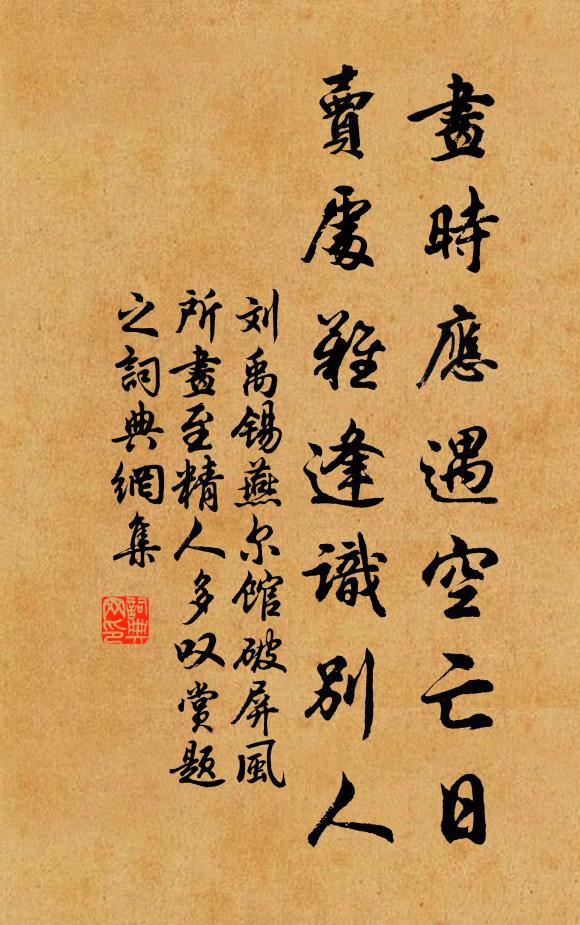 畫時應遇空亡日
賣處難逢識別人
刘禹锡燕尔馆破屏風
所畫至精人多叹赏题
之詞典網集
詞典
网印